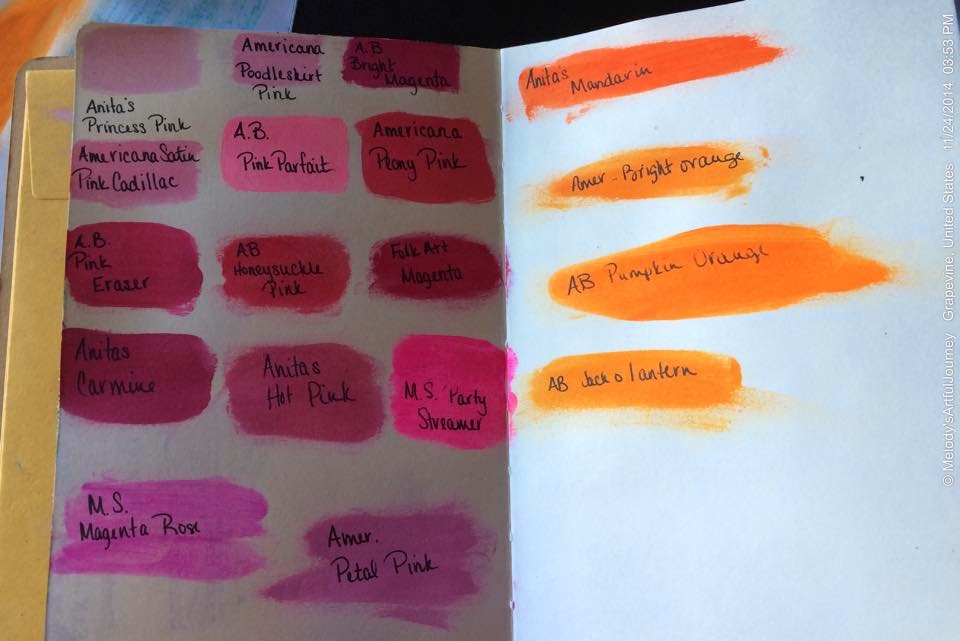 Anita's
Princess Pink
Americana
Poodleskirt
Pink
A.B
Bright
Magenta
Americana Satin
Pink Cadillac
A.B.
Pink Parfait
Americana
Peony Pink
A.B.
Pink
Eraser
AB
Honeysuckle
Pink
Folk Art
Magenta
Anitas
Carmine
Anitas
Hot Pink
M.S. Party
Streamer
M.S.
Magenta Rose
Amer.
Petal Pink
Anita's
Mandarin
Amer - Bright orange
AB Pumpkin Orange
AB Jack o lantern
© Melody'sArtfulJourney Grapevine, United States 11/24/2014 03:53 PM